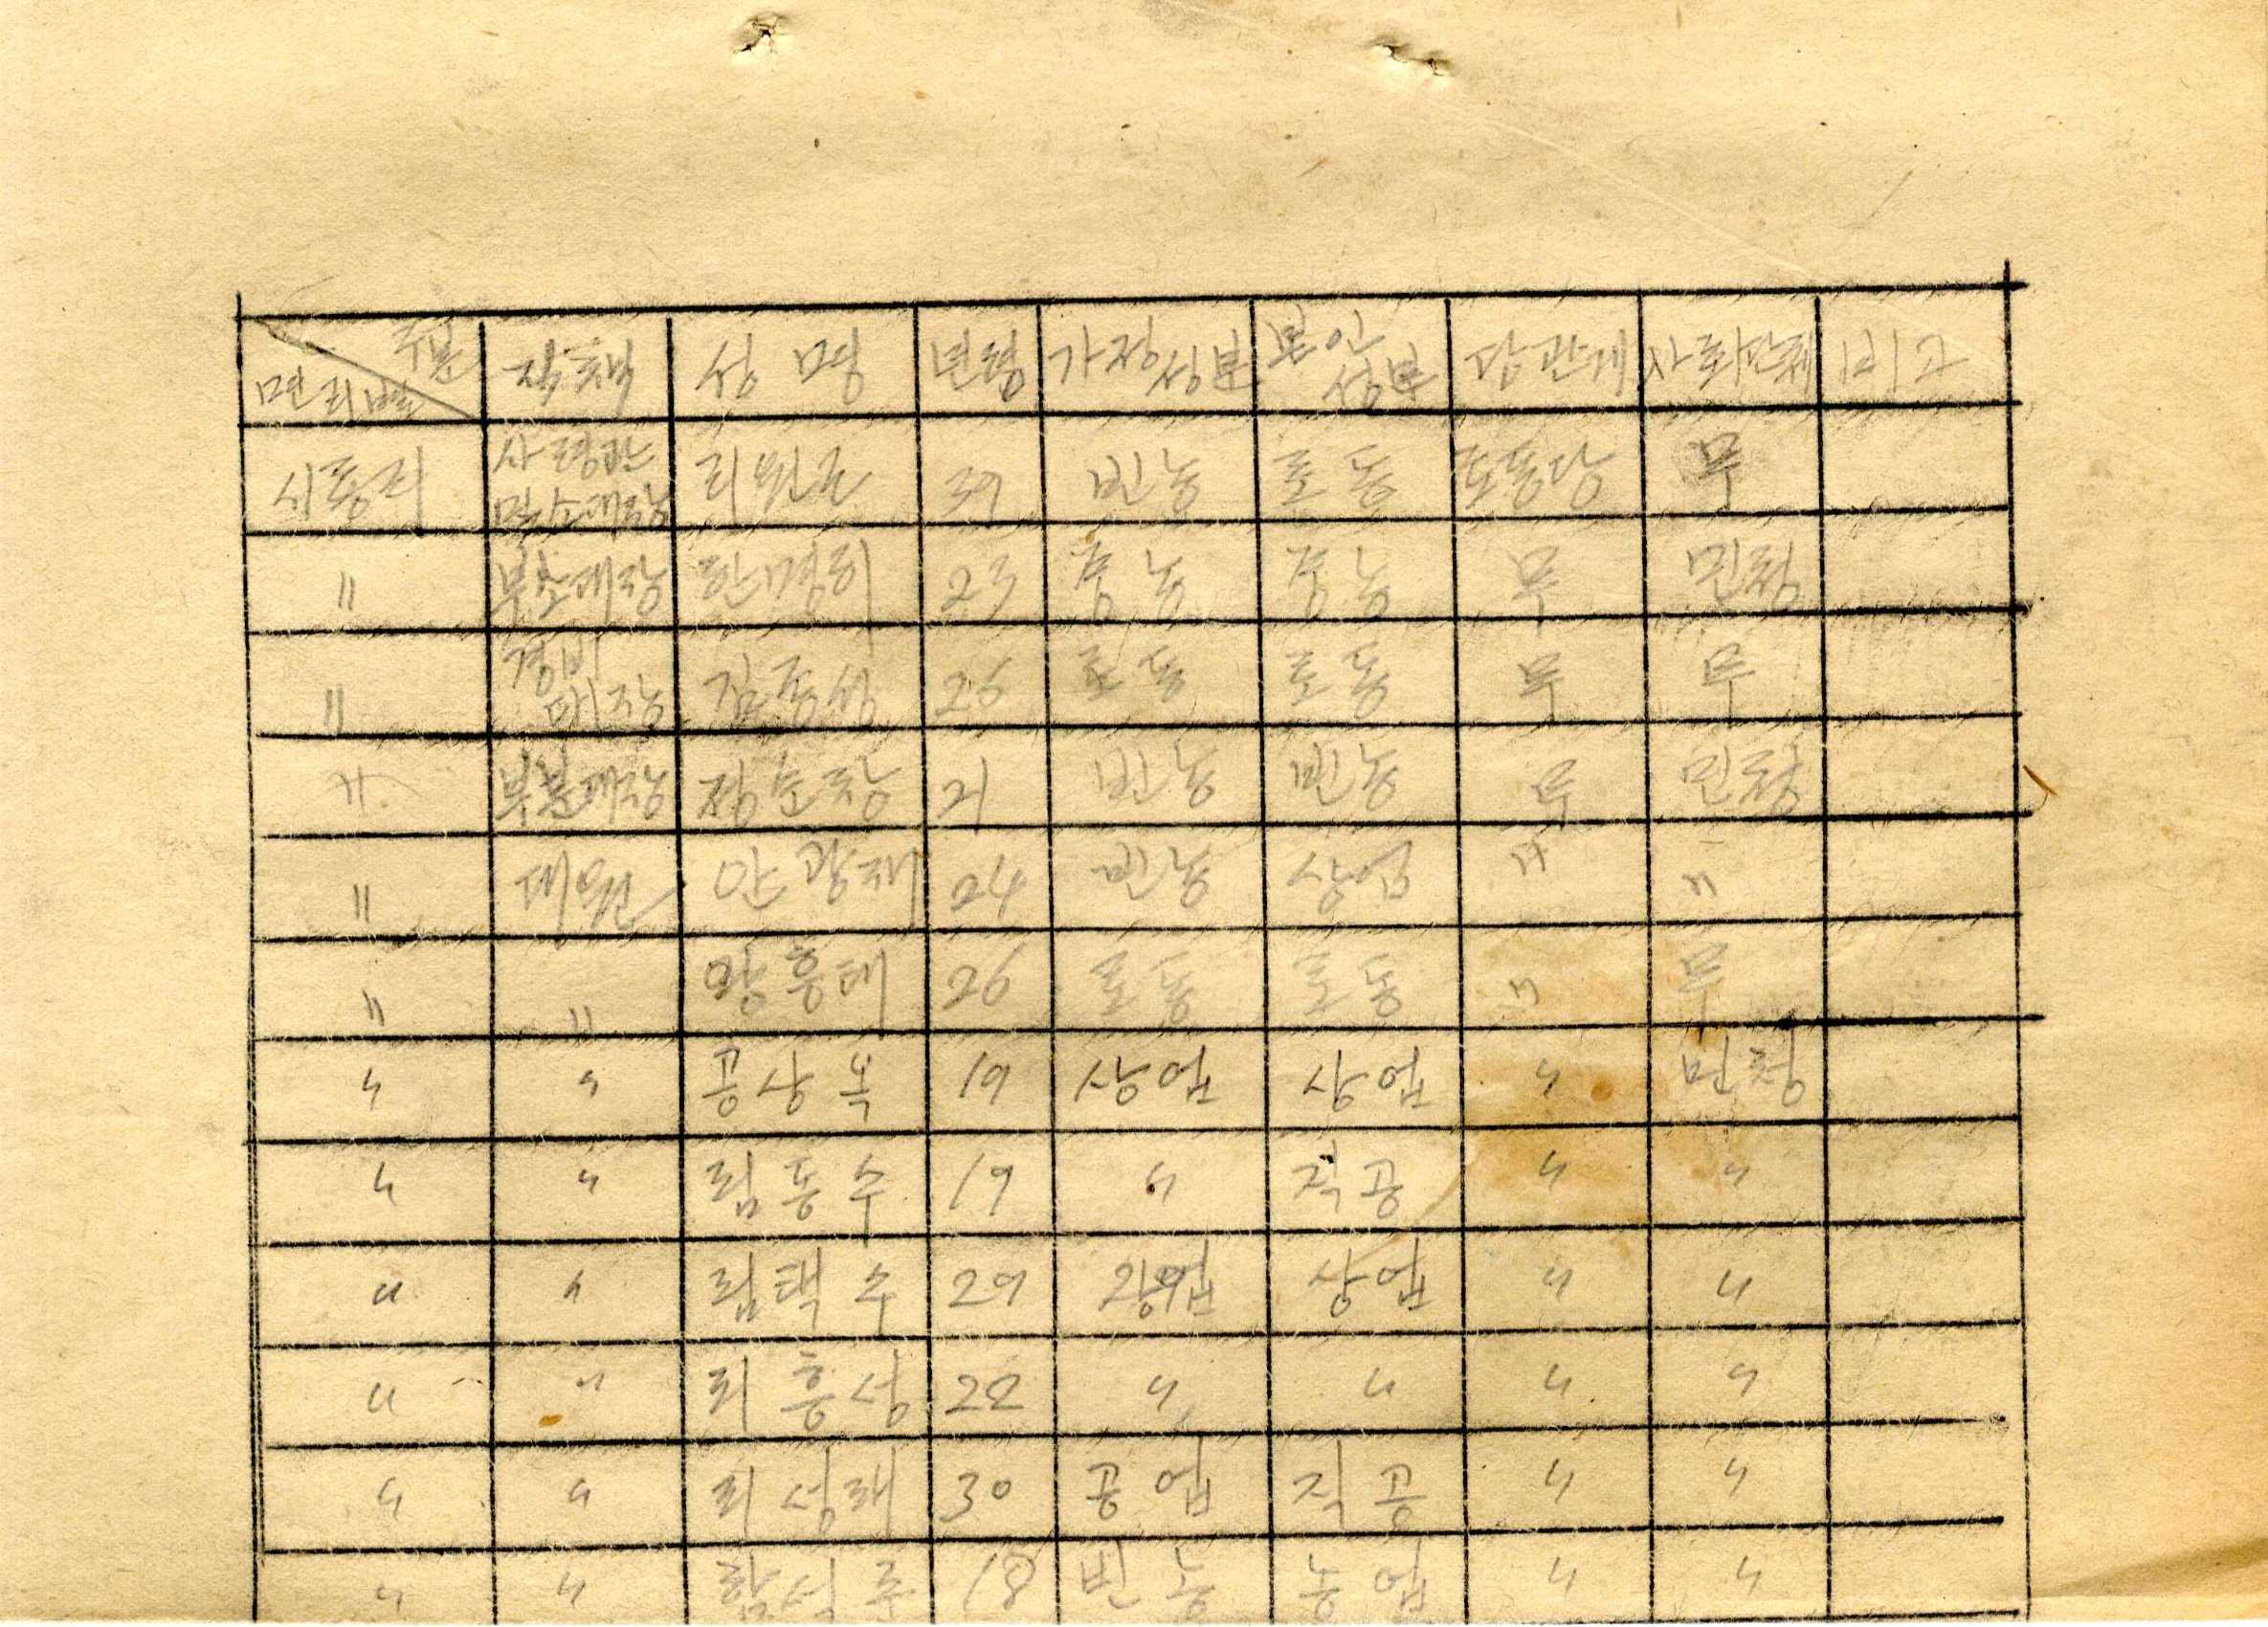 구분
면리별 직책 성명 년령 가정성분 본인성분 당관계 사회단체 비고
시흥리 사령관 리원근 39 빈농 로동 로동당 무
〃 부소대장 한명희 23 중농 중농 무 민청
〃 경비 김종성 26 로동 로동 무 무
〃 부분대장 정순장 21 빈농 빈농 무 민청
〃 대원 안광재 24 빈농 상업 〃 〃
〃 〃 흥태 26 로동 로동 〃 무
〃 〃 공상옥 19 상업 상업 〃 민청
〃 〃 림동수 19 〃 직공 〃 〃
〃 〃 림택수 29 상업 〃 〃
〃 〃 리흥성 22 〃 〃 〃 〃
〃 〃 리성래 30 공업 직공 〃 〃
〃 〃 18 빈농 농업 〃 〃